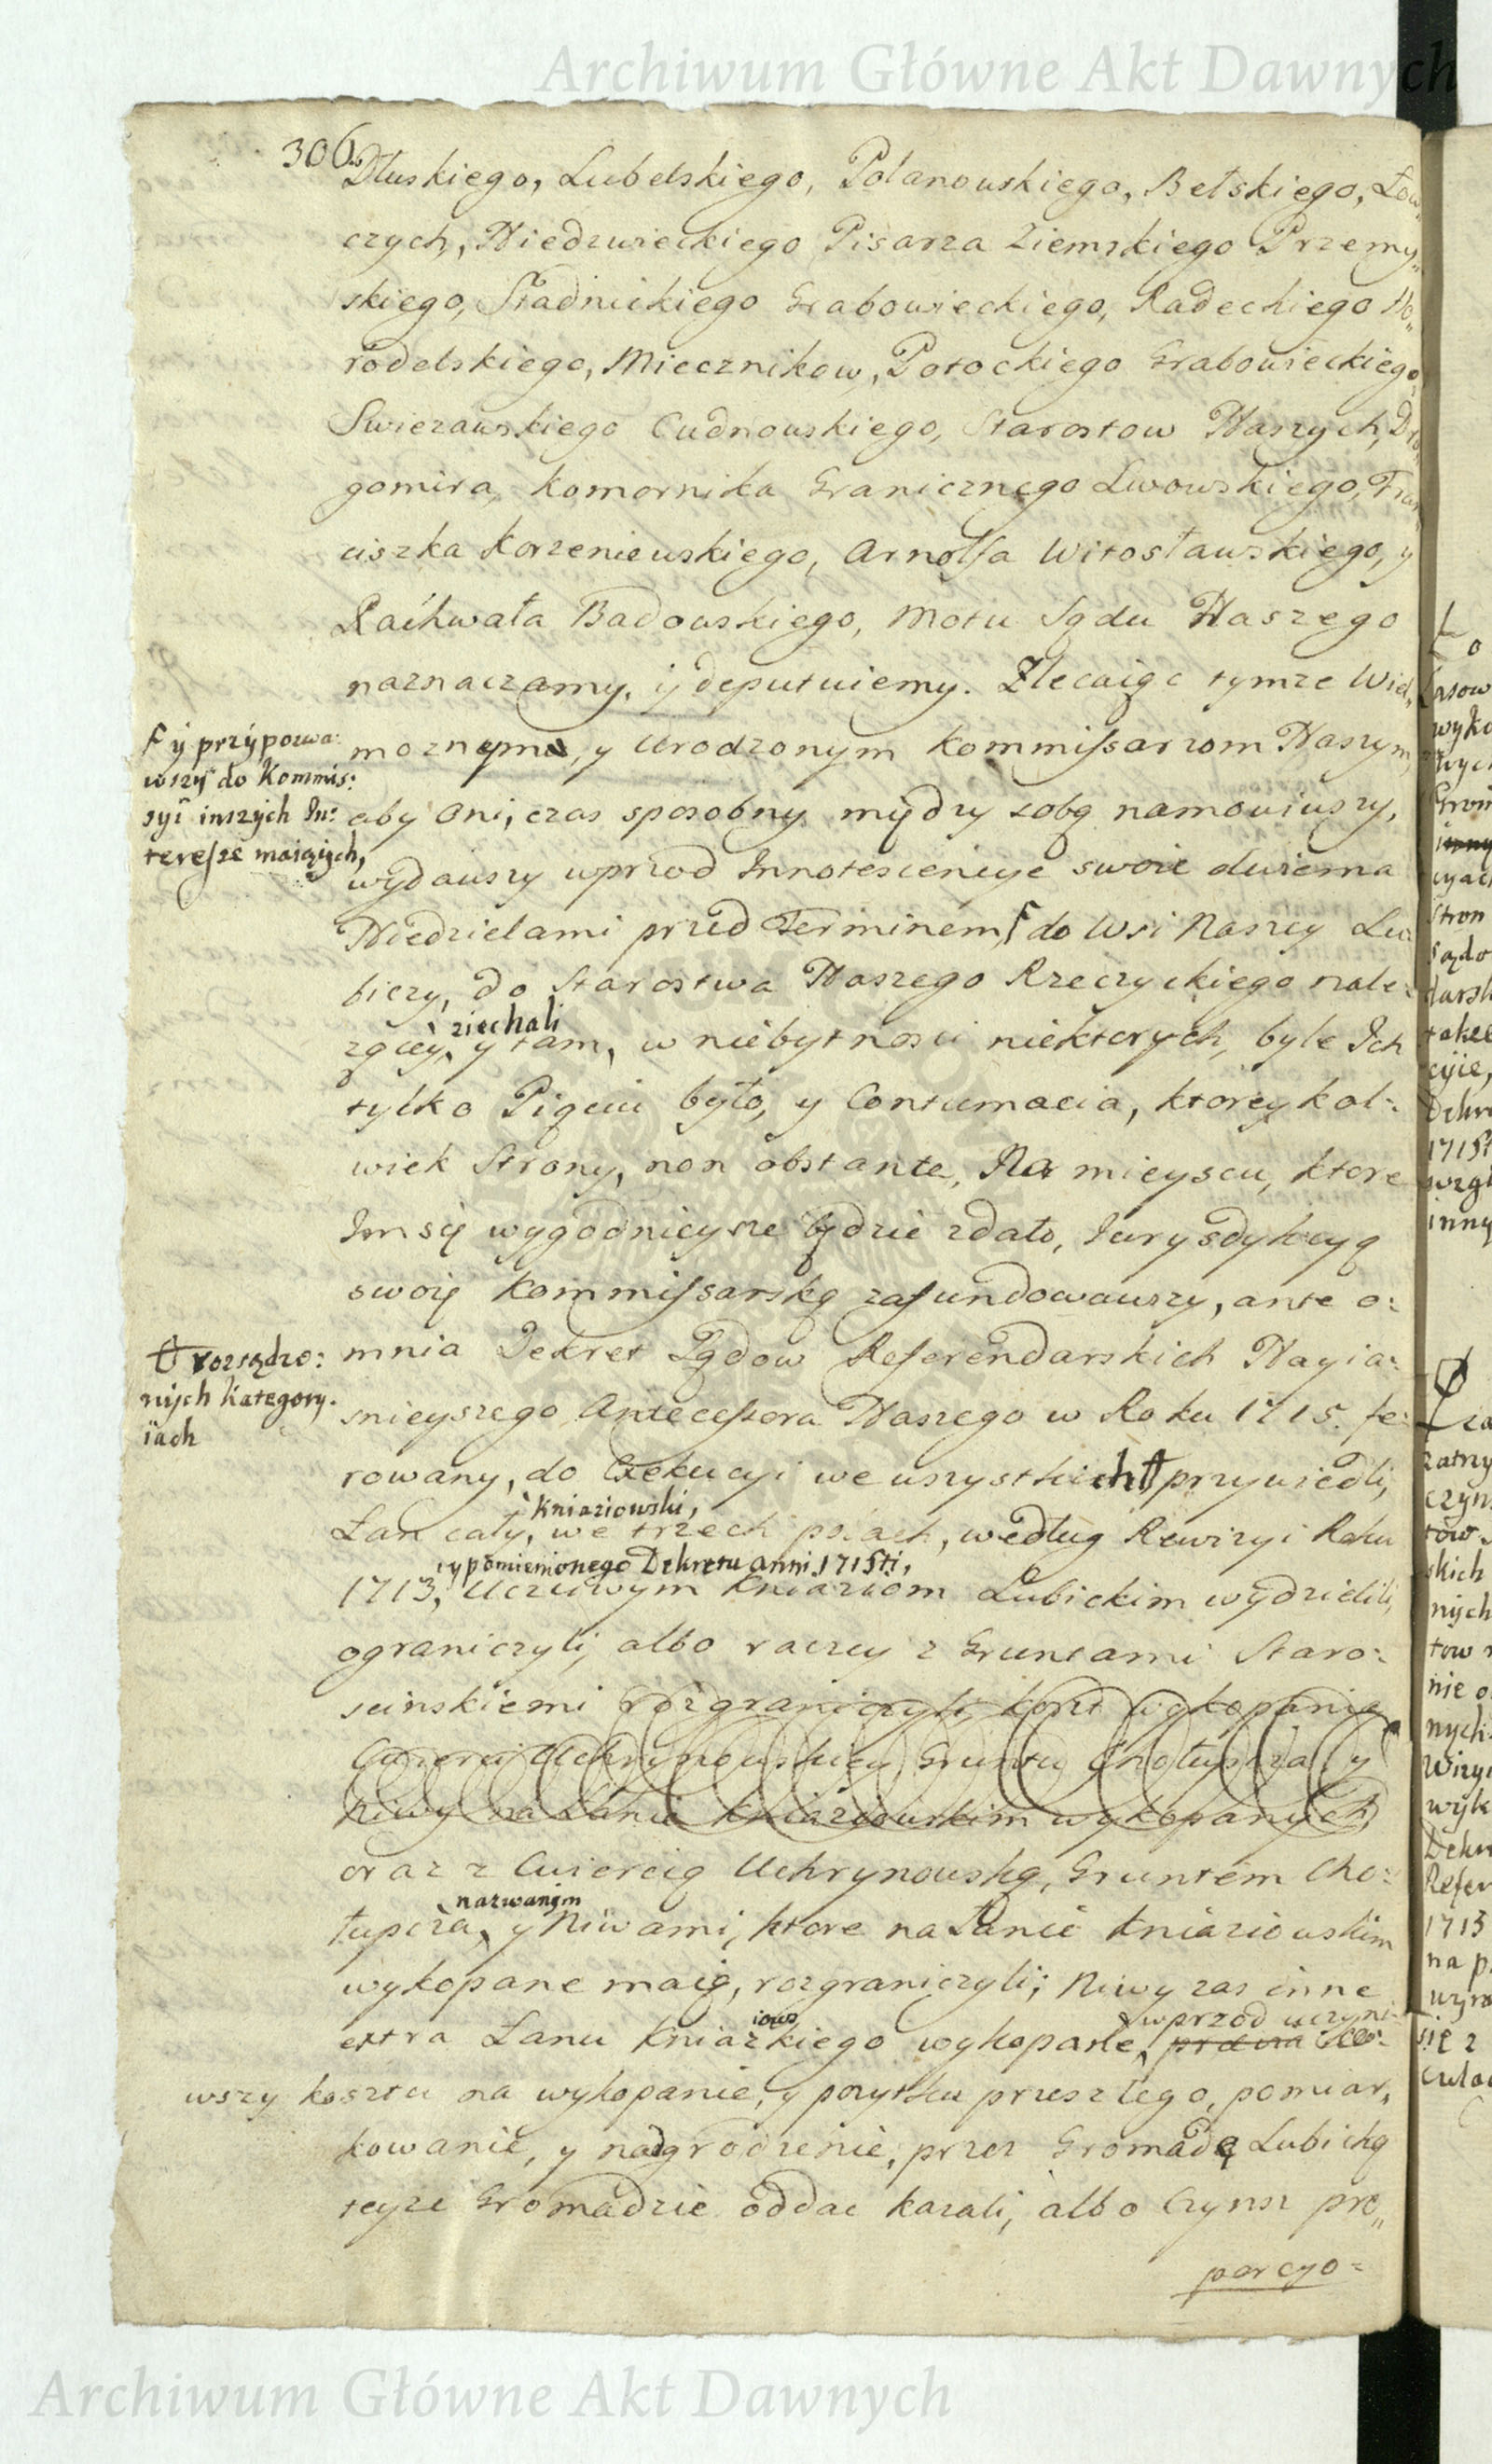 Archiwum Główne Akt Dawnych
306.
Dłuskiego, Lubelskiego, Polanowskiego, Bełskiego, Łow„
czych, Niedzwieckiego Pisarza Ziemskiego Przemy„
skiego, Stadnickiego Grabowieckiego, Radeckiego Ho„
rodelskiego, Miecznikow, Potockiego Grabowieckiego,
Swiezawskiego Cudnowskiego, Starostow Naszych, Dro„
gomira, Komornika Granicznego Lwowskiego, Fran„
ciszka Korzeniewskiego, Arnolfa Witosławskiego, y
Rachwała Badowskiego, Motu Sądu Naszego
naznaczamy, y deputuiemy. Zlecaiąc tymze Wiel„
moznym, y Urodzonym Kommissarzom Naszym,
aby Oni, czas sposobny między sobą namowiwszy,
wydawszy wprzod Innotescencye swoie dwiema
Niedzielami przed Terminem, do Wsi Naszey Lu:
biczy, do Starostwa Naszego Rzeczyckiego nale:
ziechali
zącey, y tam, w niebytnosci niektorych, byle Ich
tylko Pięciu było, y Contumacia, ktoreykol:
wiek Strony, non obstante, Na mieyscu, ktore
Im się wygodnieysze będzie zdało, Jurysdykcyą
swoię Kommissarską zafundowawszy, ante o:
mnia Dekret Sądow Referendarskich Nayia:
snieyszego Antecessora Naszego w Roku 1715. fe:
rowany, do Exekucyi we wszystkich przywiedli,
Kniaziowski,
Łan cały, we trzech polach, według Rewizyi Roku
y pomienionego Dekretu Anni 1715ti,
1713, Uczciwym Kniaziom Lubickim wydzielili,
ograniczyli, albo raczey z Gruntami Staro:
scinskiemi rozgraniczyli, koszt wykopania
Cwierci Uchrynowskiey Gruntu Chołupcza, y
Niwy na Łanie Kniaziowskim wykopanych
oraz z Cwiercią Uchrynowską, Gruntem Cho:
nazwanym
łupcza, y Niwami, ktore na Łanie Kniaziowskim
wykopane maią, rozgraniczyli; Niwy zas inne
iows wprzod uczyni„
extra Łanu Kniazkiego wykopane,
wszy kosztu na wykopanie, y pozytku przeszłego, pomiar„
kowanie, y nadgrodzenie, przez Gromadę Lubicką
teyze Gromadzie oddac kazali, albo Czynsz pro„
porcyo=
y przypozwa:
wszy do Kommis:
syi inszych In:
teresse maiących,
rozsądzo:
nych kategory.
iach
Archiwum Główne Akt Dawnych